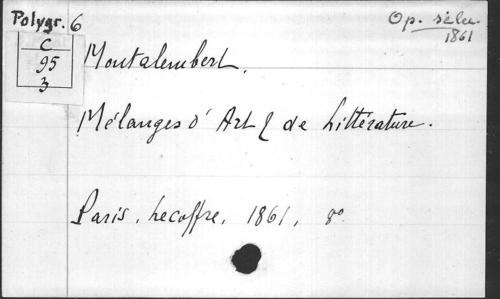 Polygr. 6
C
95
3
Op. sélec.
1861
Montalembert.
Mélanges d' Art & de Littérature.
Paris, Lecoffre, 1861, 8º